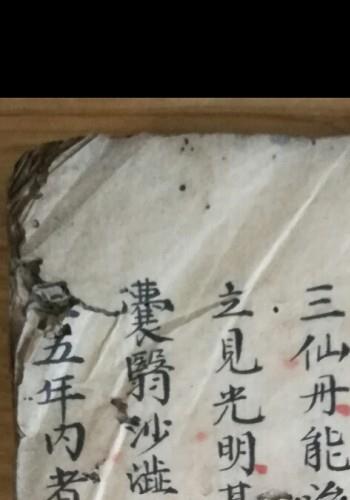 三仙丹能治
立見光明其
囊翳沙澁
五年内者